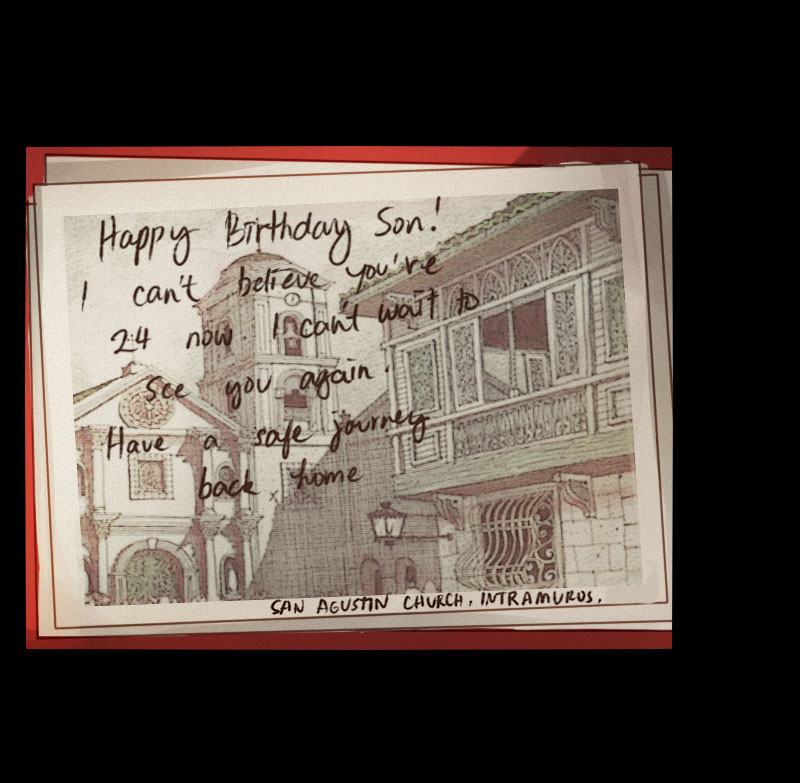 Happy Birthday Son!
I can't believe you're
24 now. I can't wait to
see you again.
Have a safe journey
back home
SAN AGUSTIN CHURCH, INTRAMUROS,